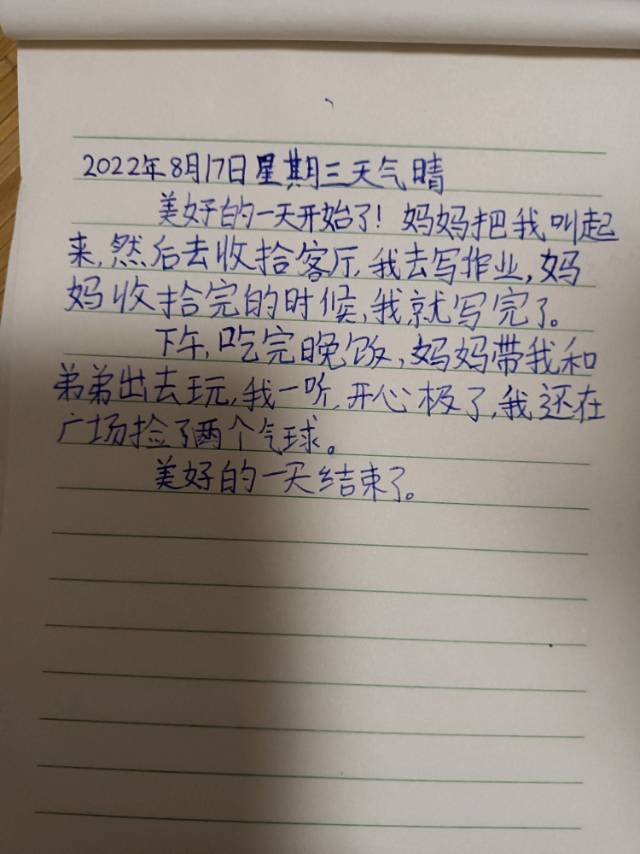 2022年8月17日星期三天气晴
美好的一天开始了！妈妈把我叫起
来,然后去收拾客厅,我去写作业,妈
妈收拾完的时候,我就写完了。
下午,吃完晚饭,妈妈带我和
弟弟出去玩,我一听,开心极了,我还在
广场捡了两个气球。
美好的一天结束了。